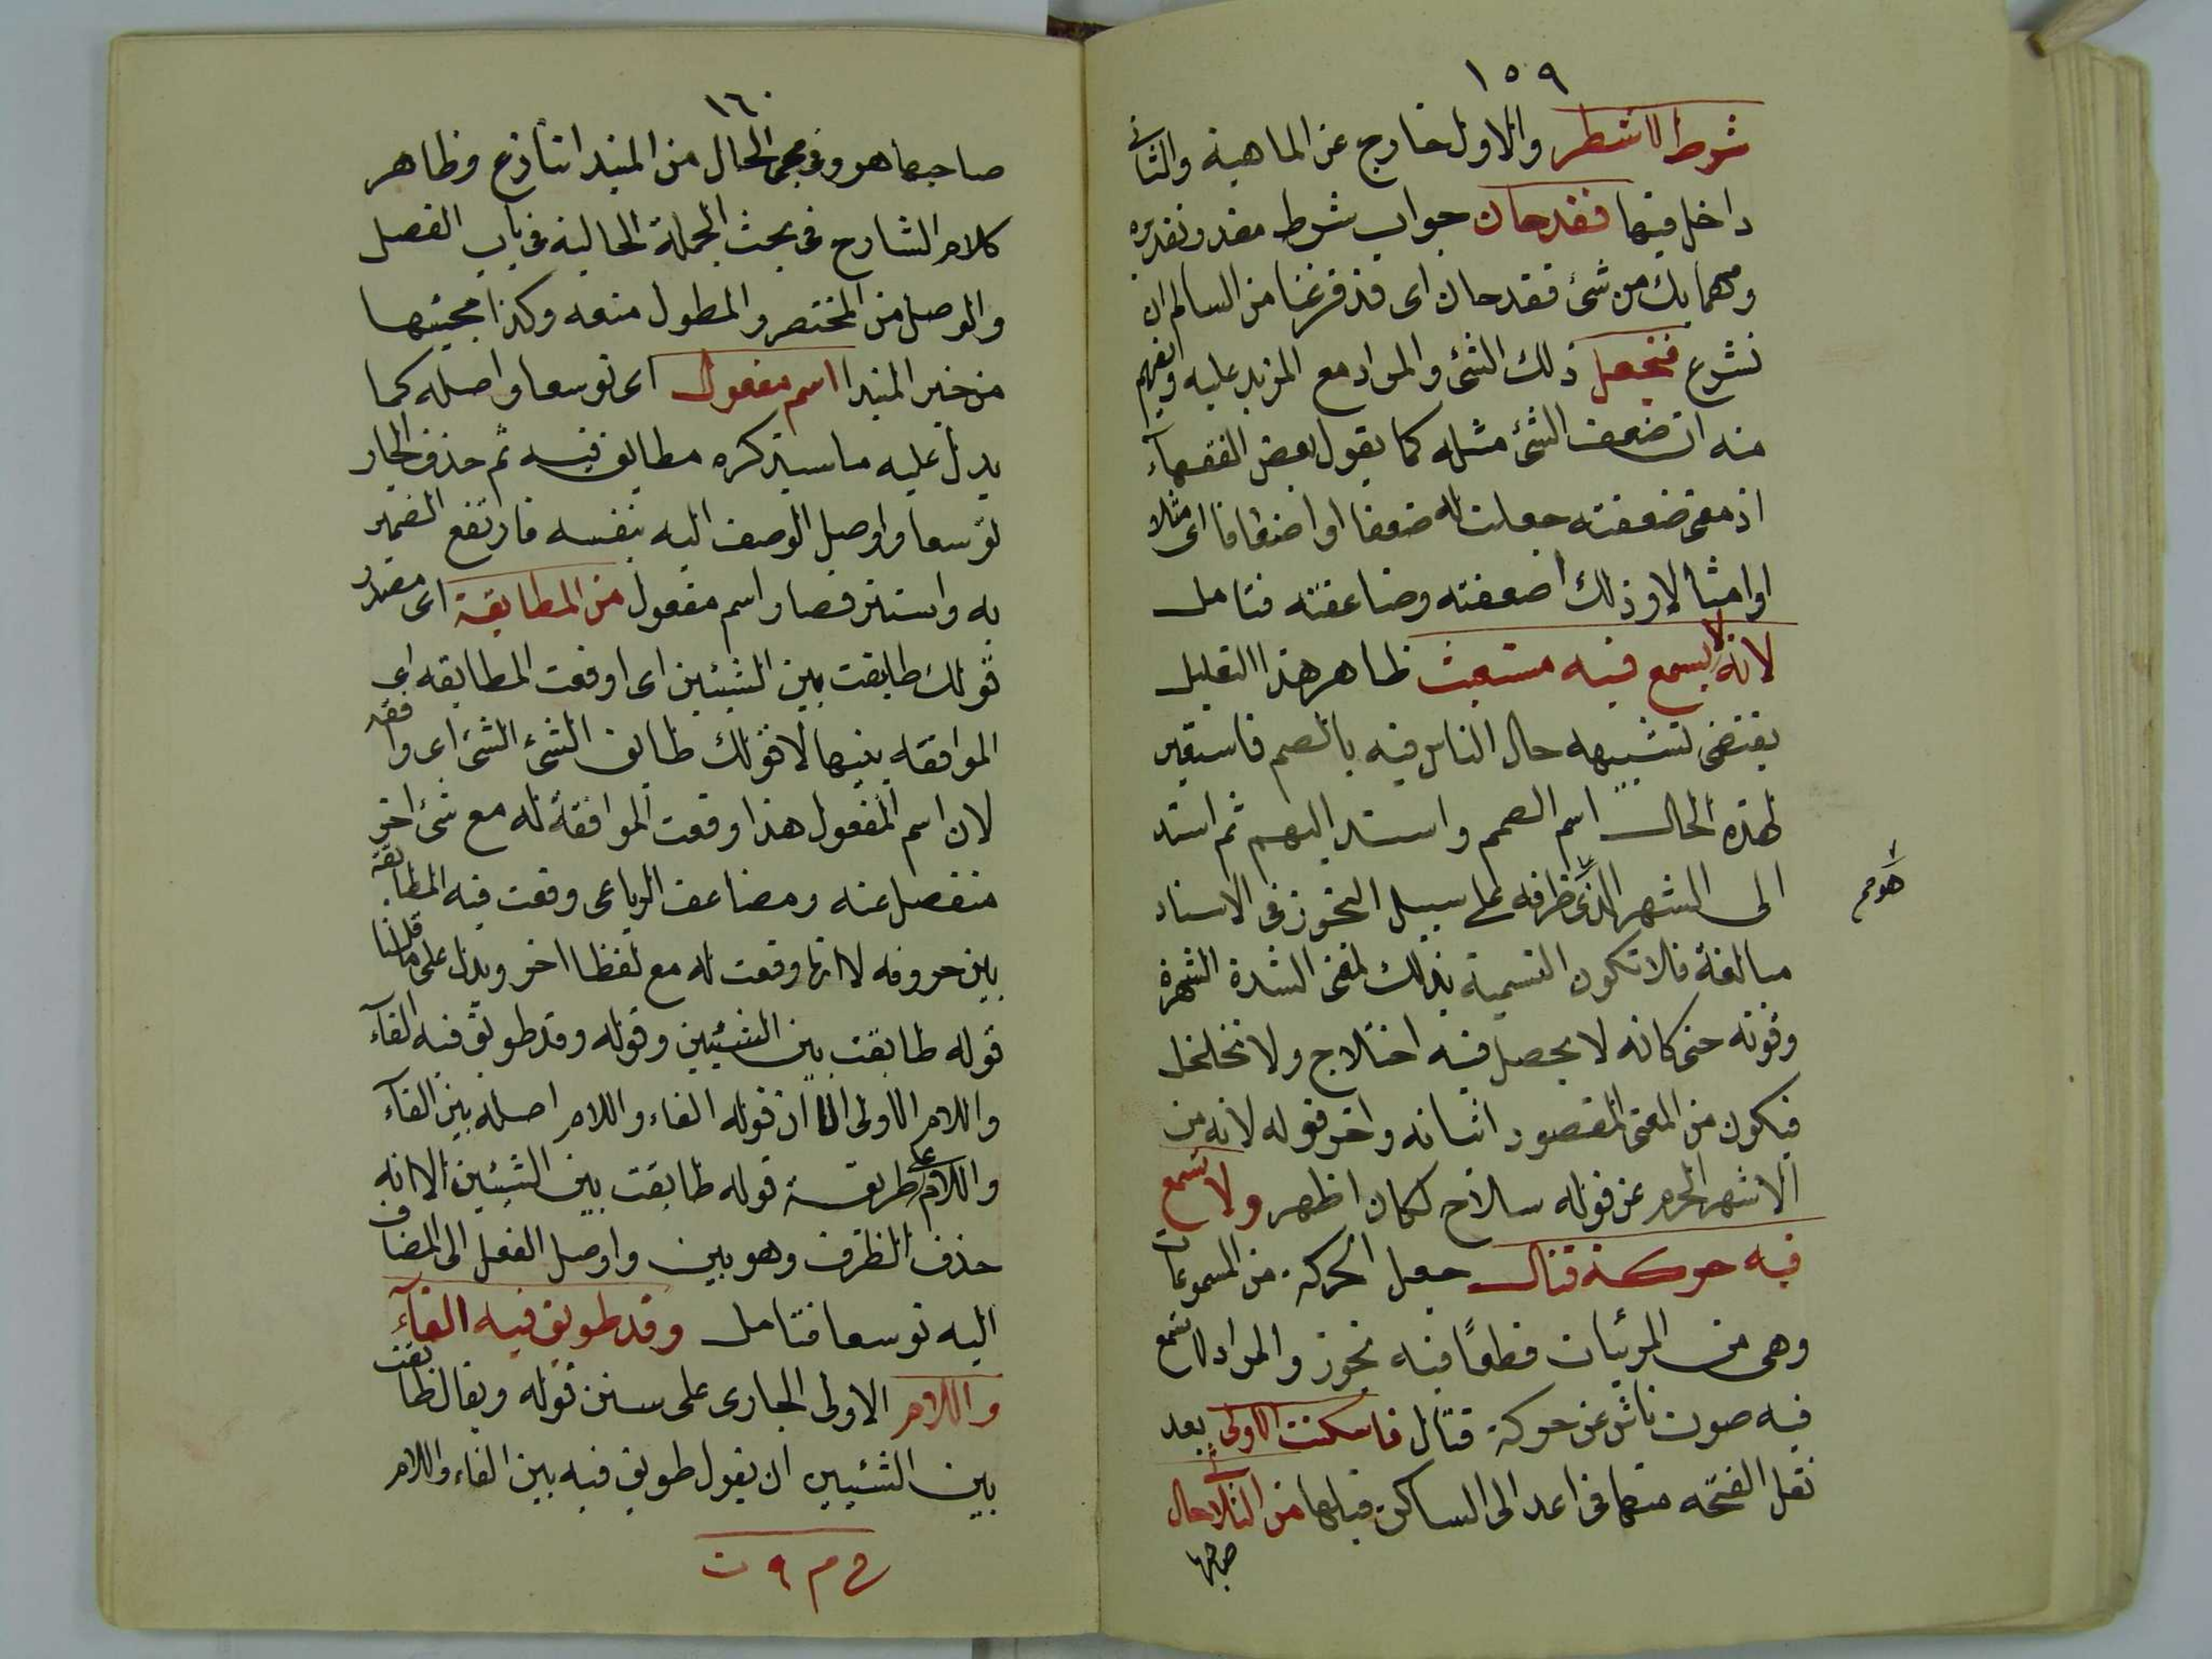 ١٥٩
شرط لا شطر والاول خارج عن الماهية والثانى
داخل فيها فقد حان جواب شرط مقدر وتقديره
ومهما يك من شئ فقد حان اى قد فرغنا من السالم ان
نشرع فنجعل ذلك الشئ والمراد مع المزيد عليه ويفهم
منه ان ضعف الشئ مثله كما يقول بعض الفقهآء
اذ معنى ضعفته جعلت له ضعفا او اضعافا اى مثلا
او امثالا وذلك اضعفته وضاعفته فتامل
لانه لا يسمع فيه مستغيث ظاهر هذا التعليل
يقتضى تشبيهه حال الناس فيه بالصم فاستعير
لهذه الحال اسم الصمم واسند اليهم ثم اسند
الى الشهر الذى ظرفه على سبيل التجوز فى الاسناد
هو صح
مبالغة فلا تكون التسمية بذلك لمعنى الشدة الشهرة
وقوته حتى كانه لا يحصل فيه اختلاج ولا تخلخل
فيكون من المعنى المقصود اثباته واخر قوله لانه من
الاشهر الحرم عن قوله سلاح لكان اظهر ولا تسمع
فيه حركة قتال جعل الحركة من المسموعات
وهى من المرئيات قطعًا فيه تجوز والمراد لا تسمع
فيه صوت ناش عن حركة قتال فاسكنت الاولى بعد
نقل الفتحه منها فى اعد الى الساكن قبلها من الثلاثى حال
صاحبها
١٦٠
صاحبها هو وفى مجئ الحال من المبتدا تنازع وظاهر
كلام الشارح فى بحث الجملة الحالية فى باب الفصل
والوصل من المختصر والمطول منعه وكذا مجيئها
من خبر المبتدا اسم مفعول اى توسعا واصله كما
يدل عليه ما سيذكره مطابق فيه ثم حذف الجار
توسعا واوصل الوصف اليه بنفسه فارتفع الضمير
به واستتر فصار اسم مفعول من المطابقة اى مصدر
قولك طابقت بين الشيئين اى اوقعت المطابقه اى
الموافقه بينهما لا قولك طابق الشئ الشئ اى وافقه
لان اسم المفعول هذا وقعت الموافقة له مع شئ اخر
منفصل عنه ومضاعف الرباعى وقعت فيه المطابقة
بين حروفه لا انها وقعت له مع لفظا اخر ويدل على ما قلنا
قوله طابقت بين الشيئين وقوله وقد طوبق فيه الفآء
واللام الاولى الا ان قوله الفاء واللام اصله بين الفآء
واللام على طريقة قوله طابقت بين الشيئين الا انه
حذف الظرف وهو بين واوصل الفعل الى المضاف
اليه توسعا فتامل وقد طوبق فيه الفآء
واللام الاولى الجارى على سنن قوله ويقال طابقت
بين الشيئين ان يقول طوبق فيه بين الفاء واللام